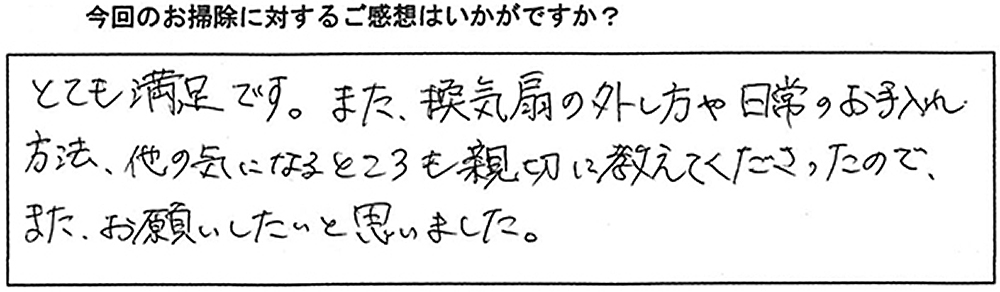 今回のお掃除に対するご感想はいかがですか？
とても満足です。また、換気扇の外し方や日常のお手入れ
方法、他の気になるところも親切に教えてくださったので、
また、お願いしたいと思いました。